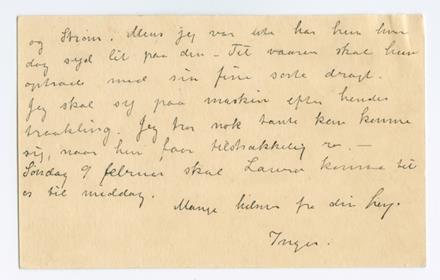 og Strøm. Mens jeg var ute har hun hver
dag syd lit paa den – Til vaaren skal hun
optræde med sin fine sorte dragt.
Jeg skal sy paa maskin efter hendes
traakling. Jeg tror nok tante kan komme
sig, naar hun faar tilstrækkelig ro. —
Søndag 9 februar skal Laura komme til
os til middag.
Mange hilsner fra din
Inger.